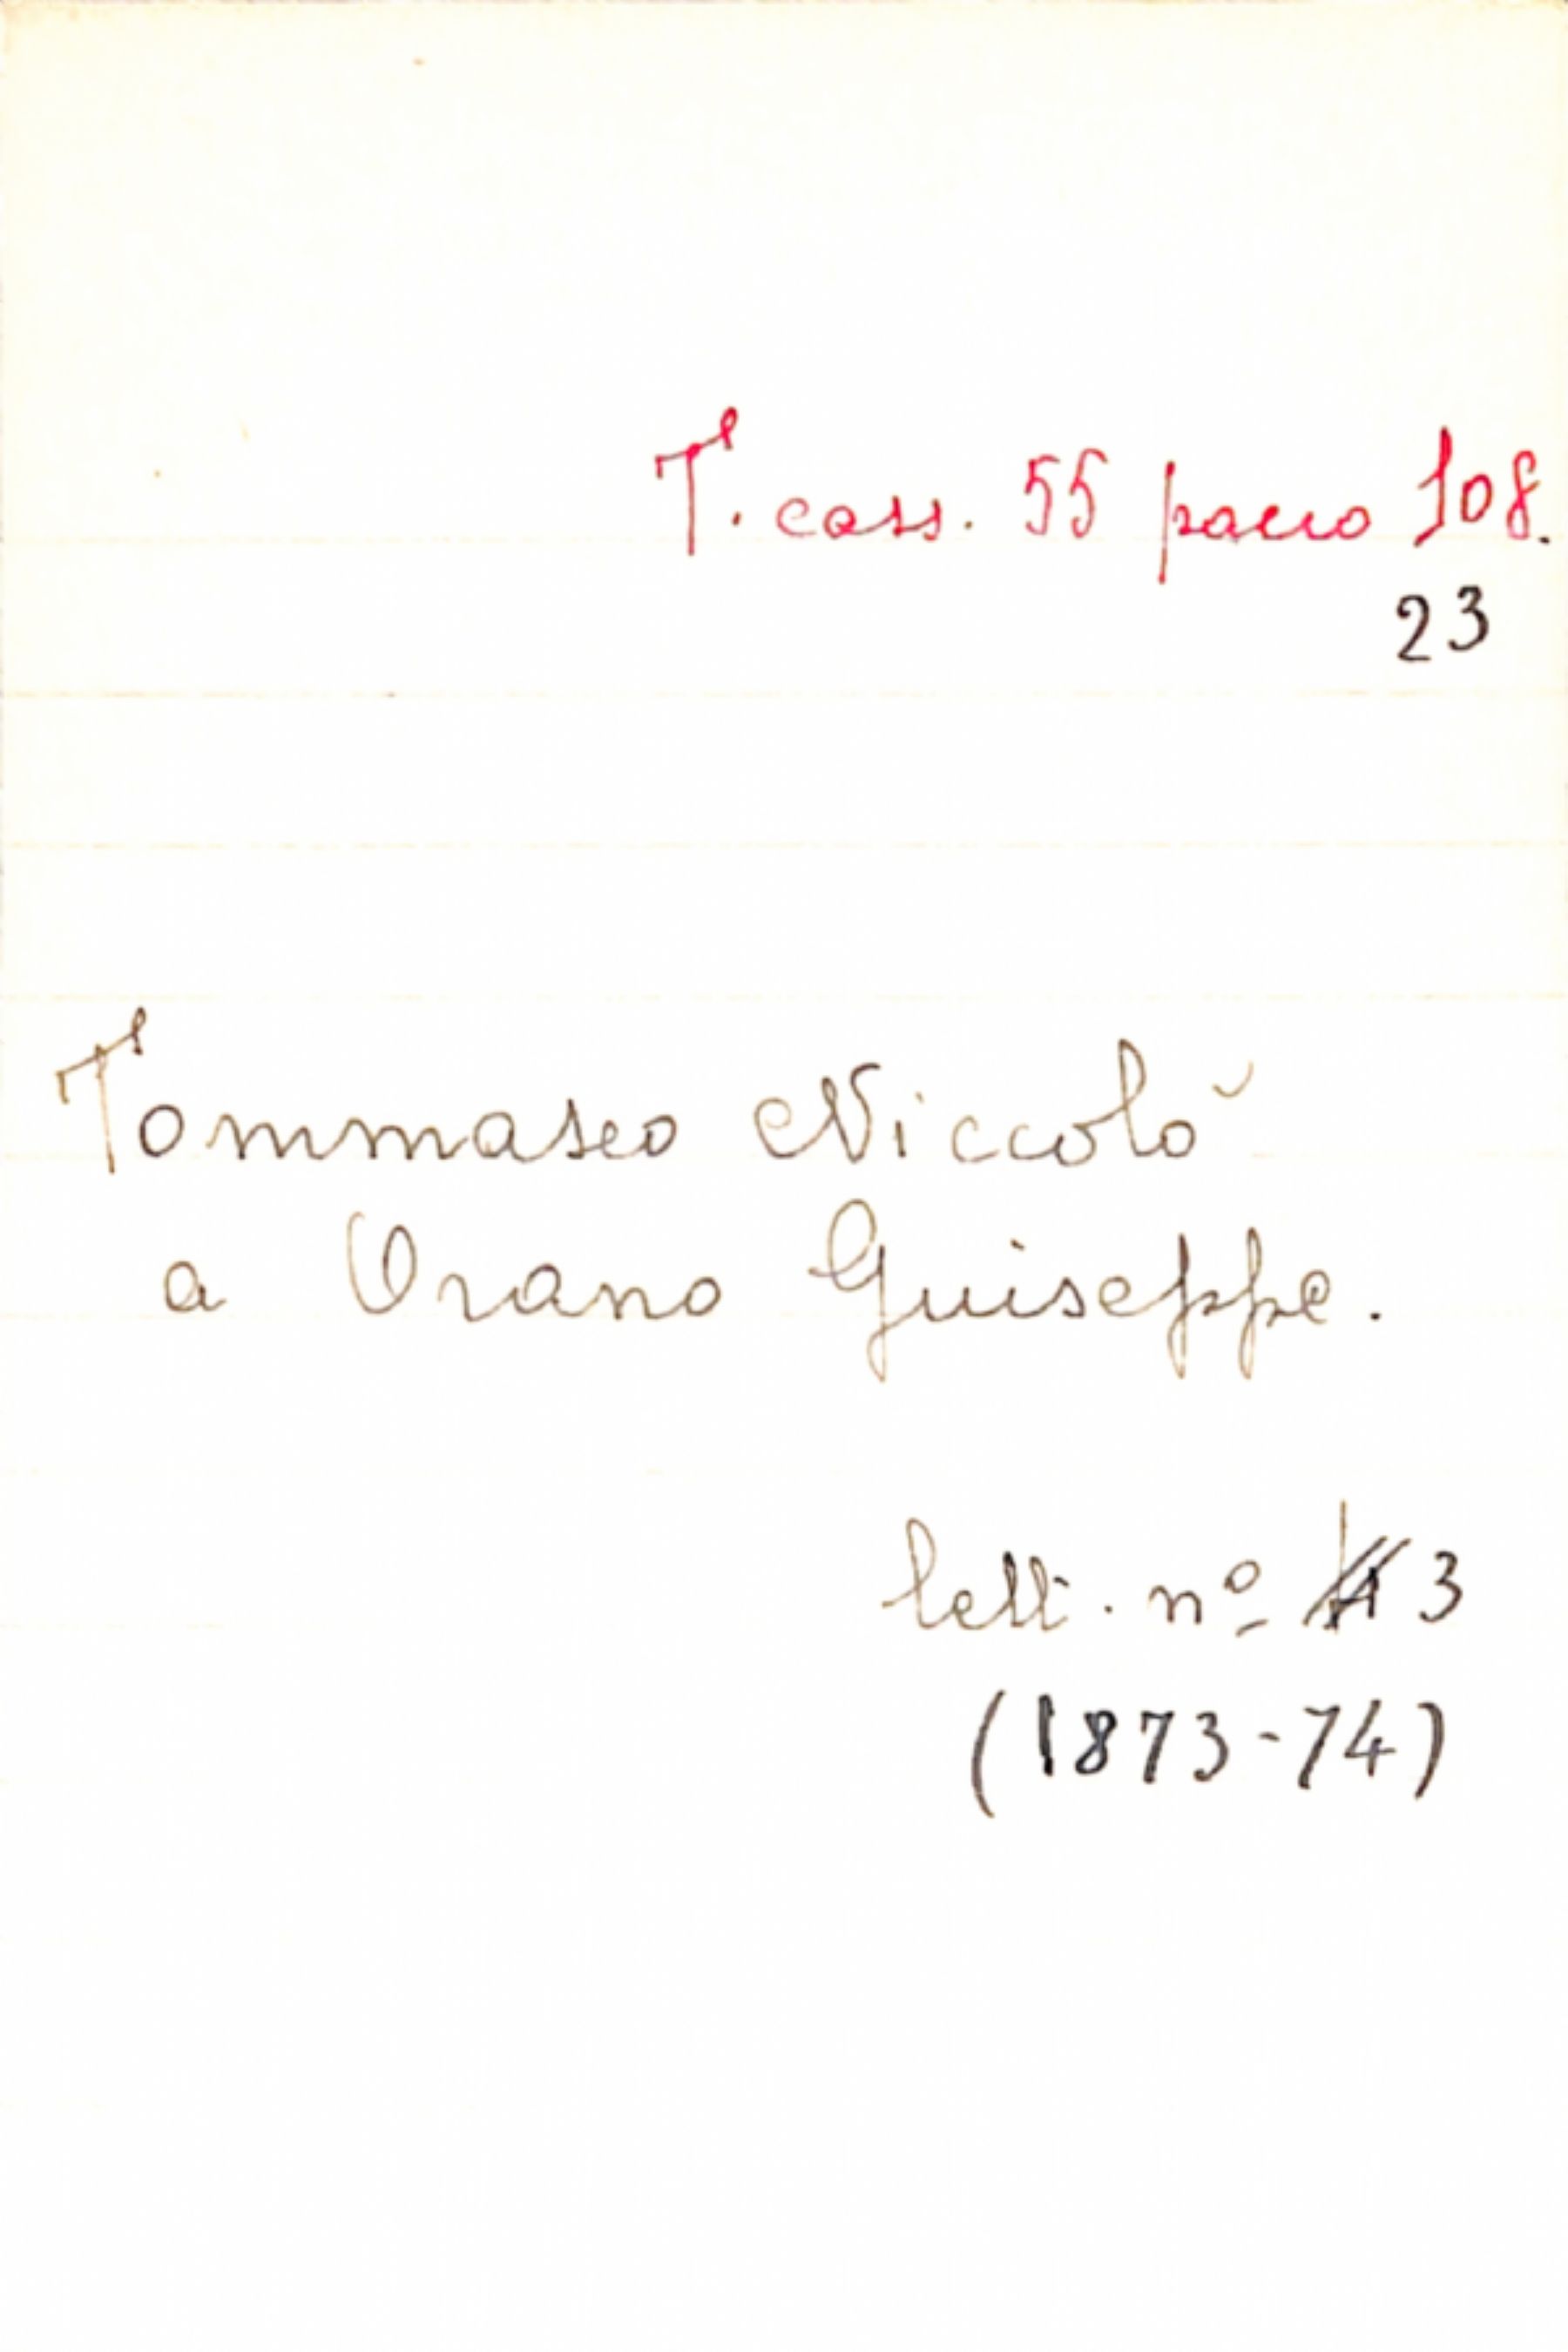 T. cass. 55 pacco 108.
23
Tommaseo Niccolò
a Orano Guiseppe.
lett. nº 3
(1873-74)